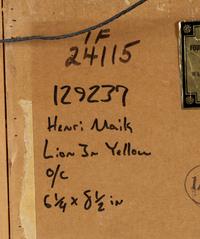 TF
24115
129237
Henri Maik
Lion In Yellow
O/C
6 1/4 x 8 1/2 in